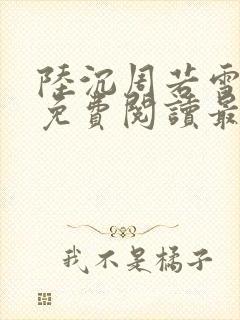 陸沉周若雪
免費閱讀最
我不是橘子